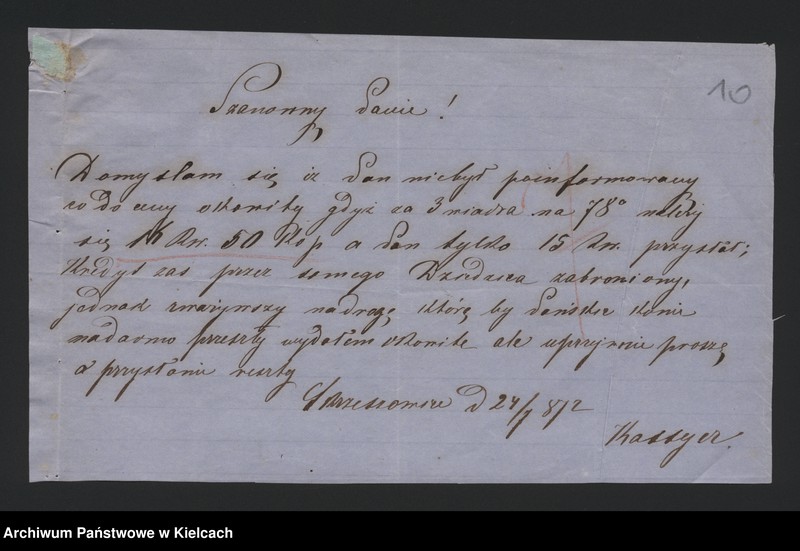 10
Szanowny Panie!
Domyślam się, iż Pan niebył poinformowany
co do ceny okowity gdyż za 3 wiadra na 78° należy
się 16 Rs. 50 Kop a Pan tylko 15 Rs. przysłał;
Kredyt zaś przez samego Dziedzica zabroniony,
jednak zważywszy na drogę, którę by Pańskie konie
nadarmo przeszły wydałem okowitę ale uprzejmie proszę
o przysłanie reszty
d 24/1 872
Kassyer.
Archiwum Państwowe w Kielcach